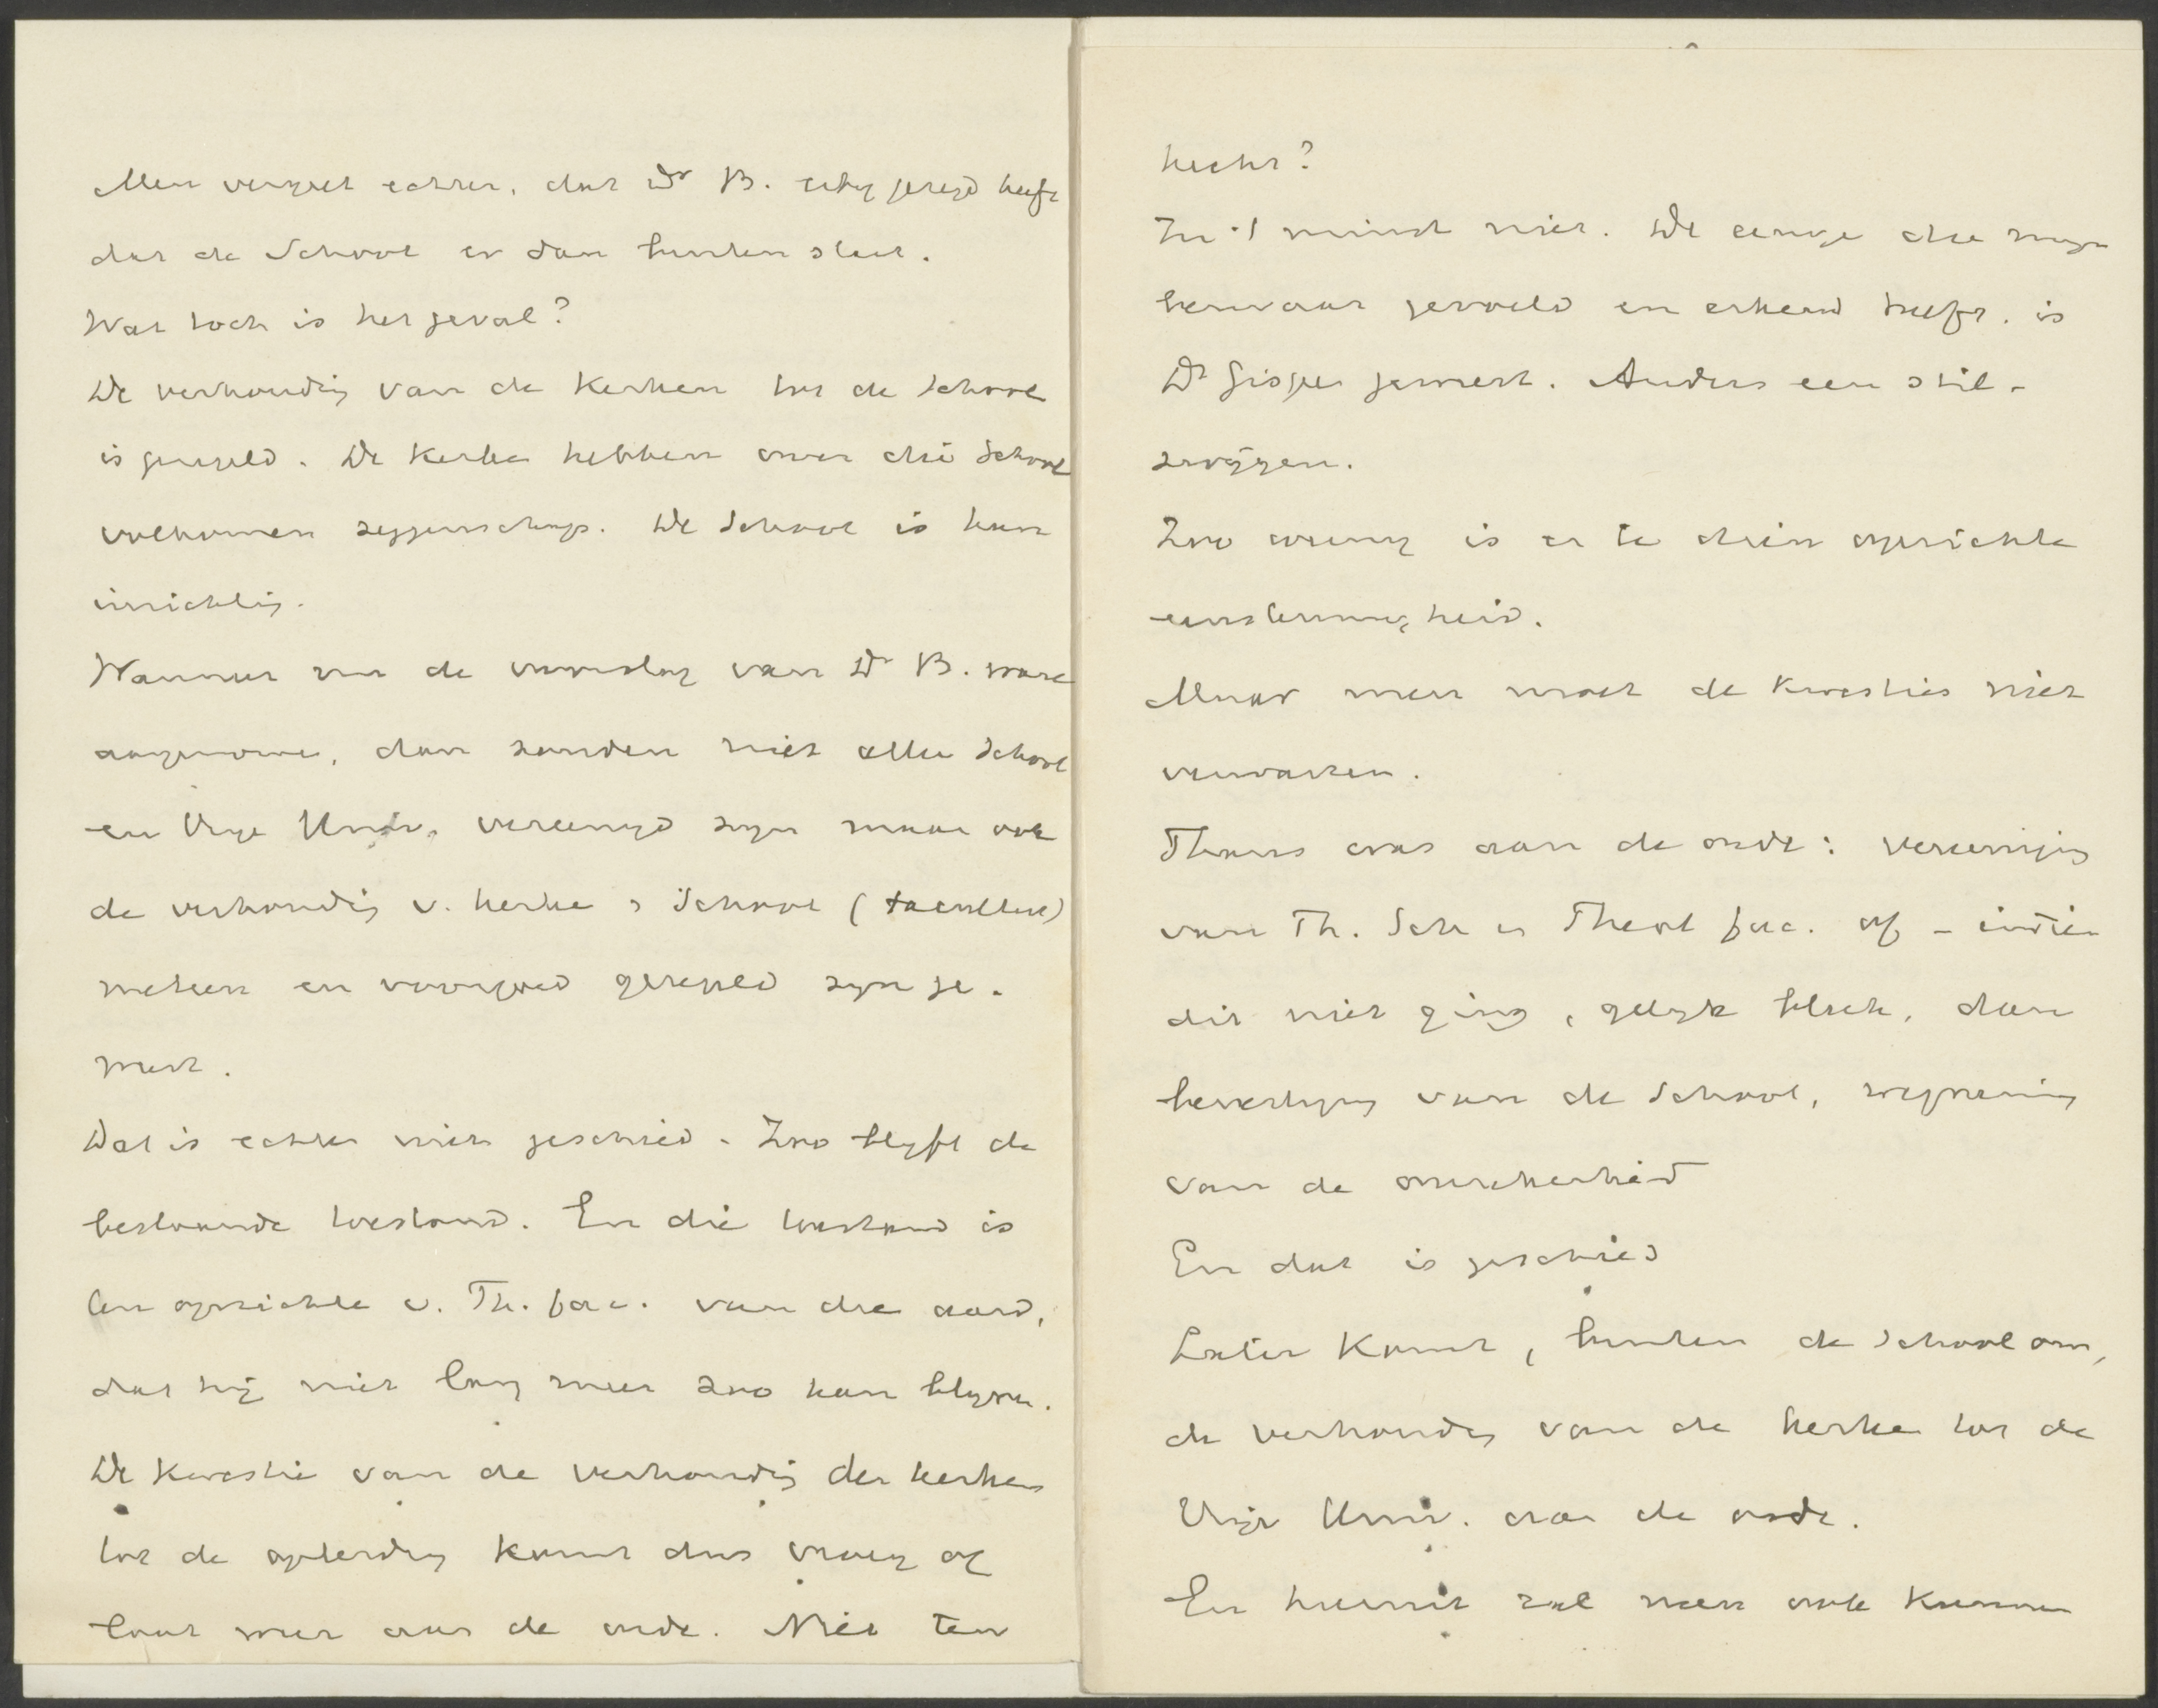 Men vergeet echter, dat Dr B. altijd gezegd heeft
dat de School er dan buiten sluit.
Wat toch is het geval?
De verhouding van de Kerken tot de School
is geregeld. De Kerken hebben over die School
volkomen zeggenschap. De School is hun
inrichting.
Wanneer nu de voorslag van Dr B. ware
aangenomen, dan zouden niet alleen School
en Vrije Univ. vereenigd zijn maar ook
de verhouding v. kerken & School (faculteit)
meteen en voorgoed geregeld zijn ge-
weest.
Dat is echter niet geschied. Zoo blijft de
bestaande toestand. En die toestand is
ten opzichte v. Th. fac. van die aard,
dat hij niet lang meer zoo kan blijven.
De kwestie van de verhouding der kerken
tot de opleiding komt dus vroeg of
laat weer aan de orde. Niet ten
In 't minst niet. De eenige die mijn
bezwaar gevoeld en erkend heeft, is
Dr Gispen geweest. Anders een stil-
zwijgen.
Zoo weinig is er te dezen opzichte
eenstemmigheid.
Maar men moet de kwesties niet
verwarren.
Thans was aan de orde: vereeniging
van Th. Sch en Theol fac. of – indien
dit niet ging, gelijk bleek, dan
bevestiging van de School, wegneming
van de onzekerheid
En dat is geschied
Later komt, buiten de School om,
de verhouding van de kerken tot de
Vrije Univ. aan de orde.
En hiermee zal men ook kunnen